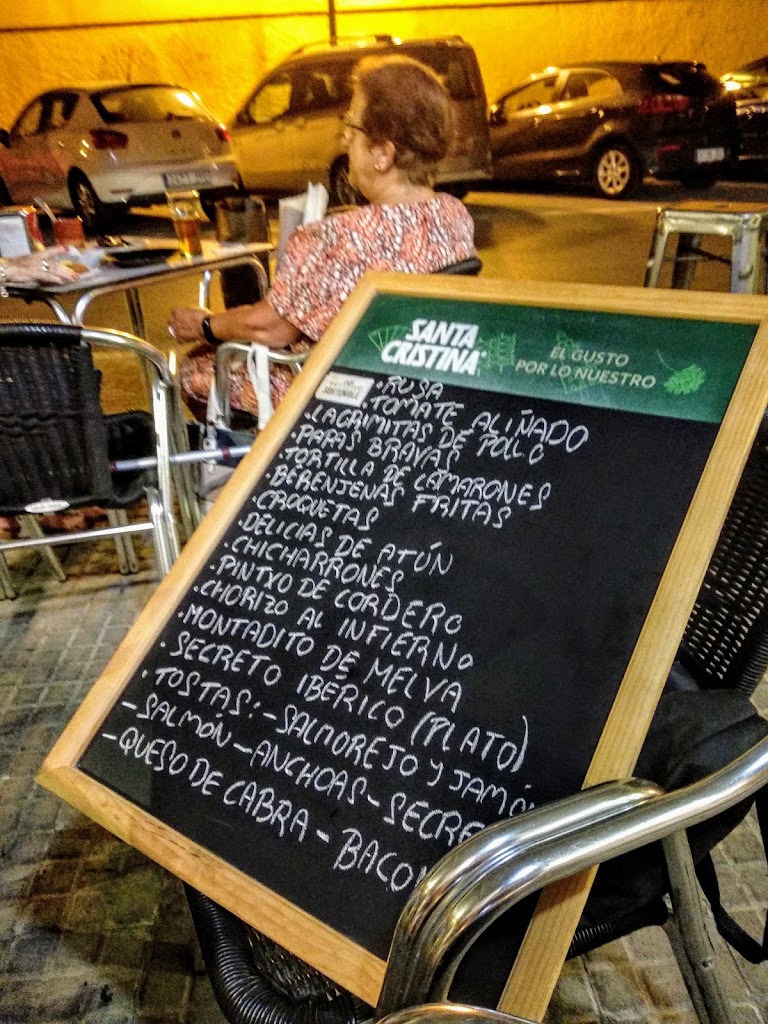 SANTA CRISTINA
EL GUSTO
POR LO NUESTRO
SOSTENIBLE
·RUSA
·TOMATE ALIÑADO
·LAGRIMITAS DE POLLO
·PAPAS BRAVAS
·TORTILLA DE CAMARONES
·BERENJENAS FRITAS
·CROQUETAS
·DELICIAS DE ATÚN
·CHICHARRONES
·PINTXO DE CORDERO
·CHORIZO AL INFIERNO
·MONTADITO DE MELVA
·SECRETO IBÉRICO (PLATO)
·TOSTAS: -SALMOREJO Y JAMÓN
-SALMÓN -ANCHOAS -SECRE
-QUESO DE CABRA - BACON